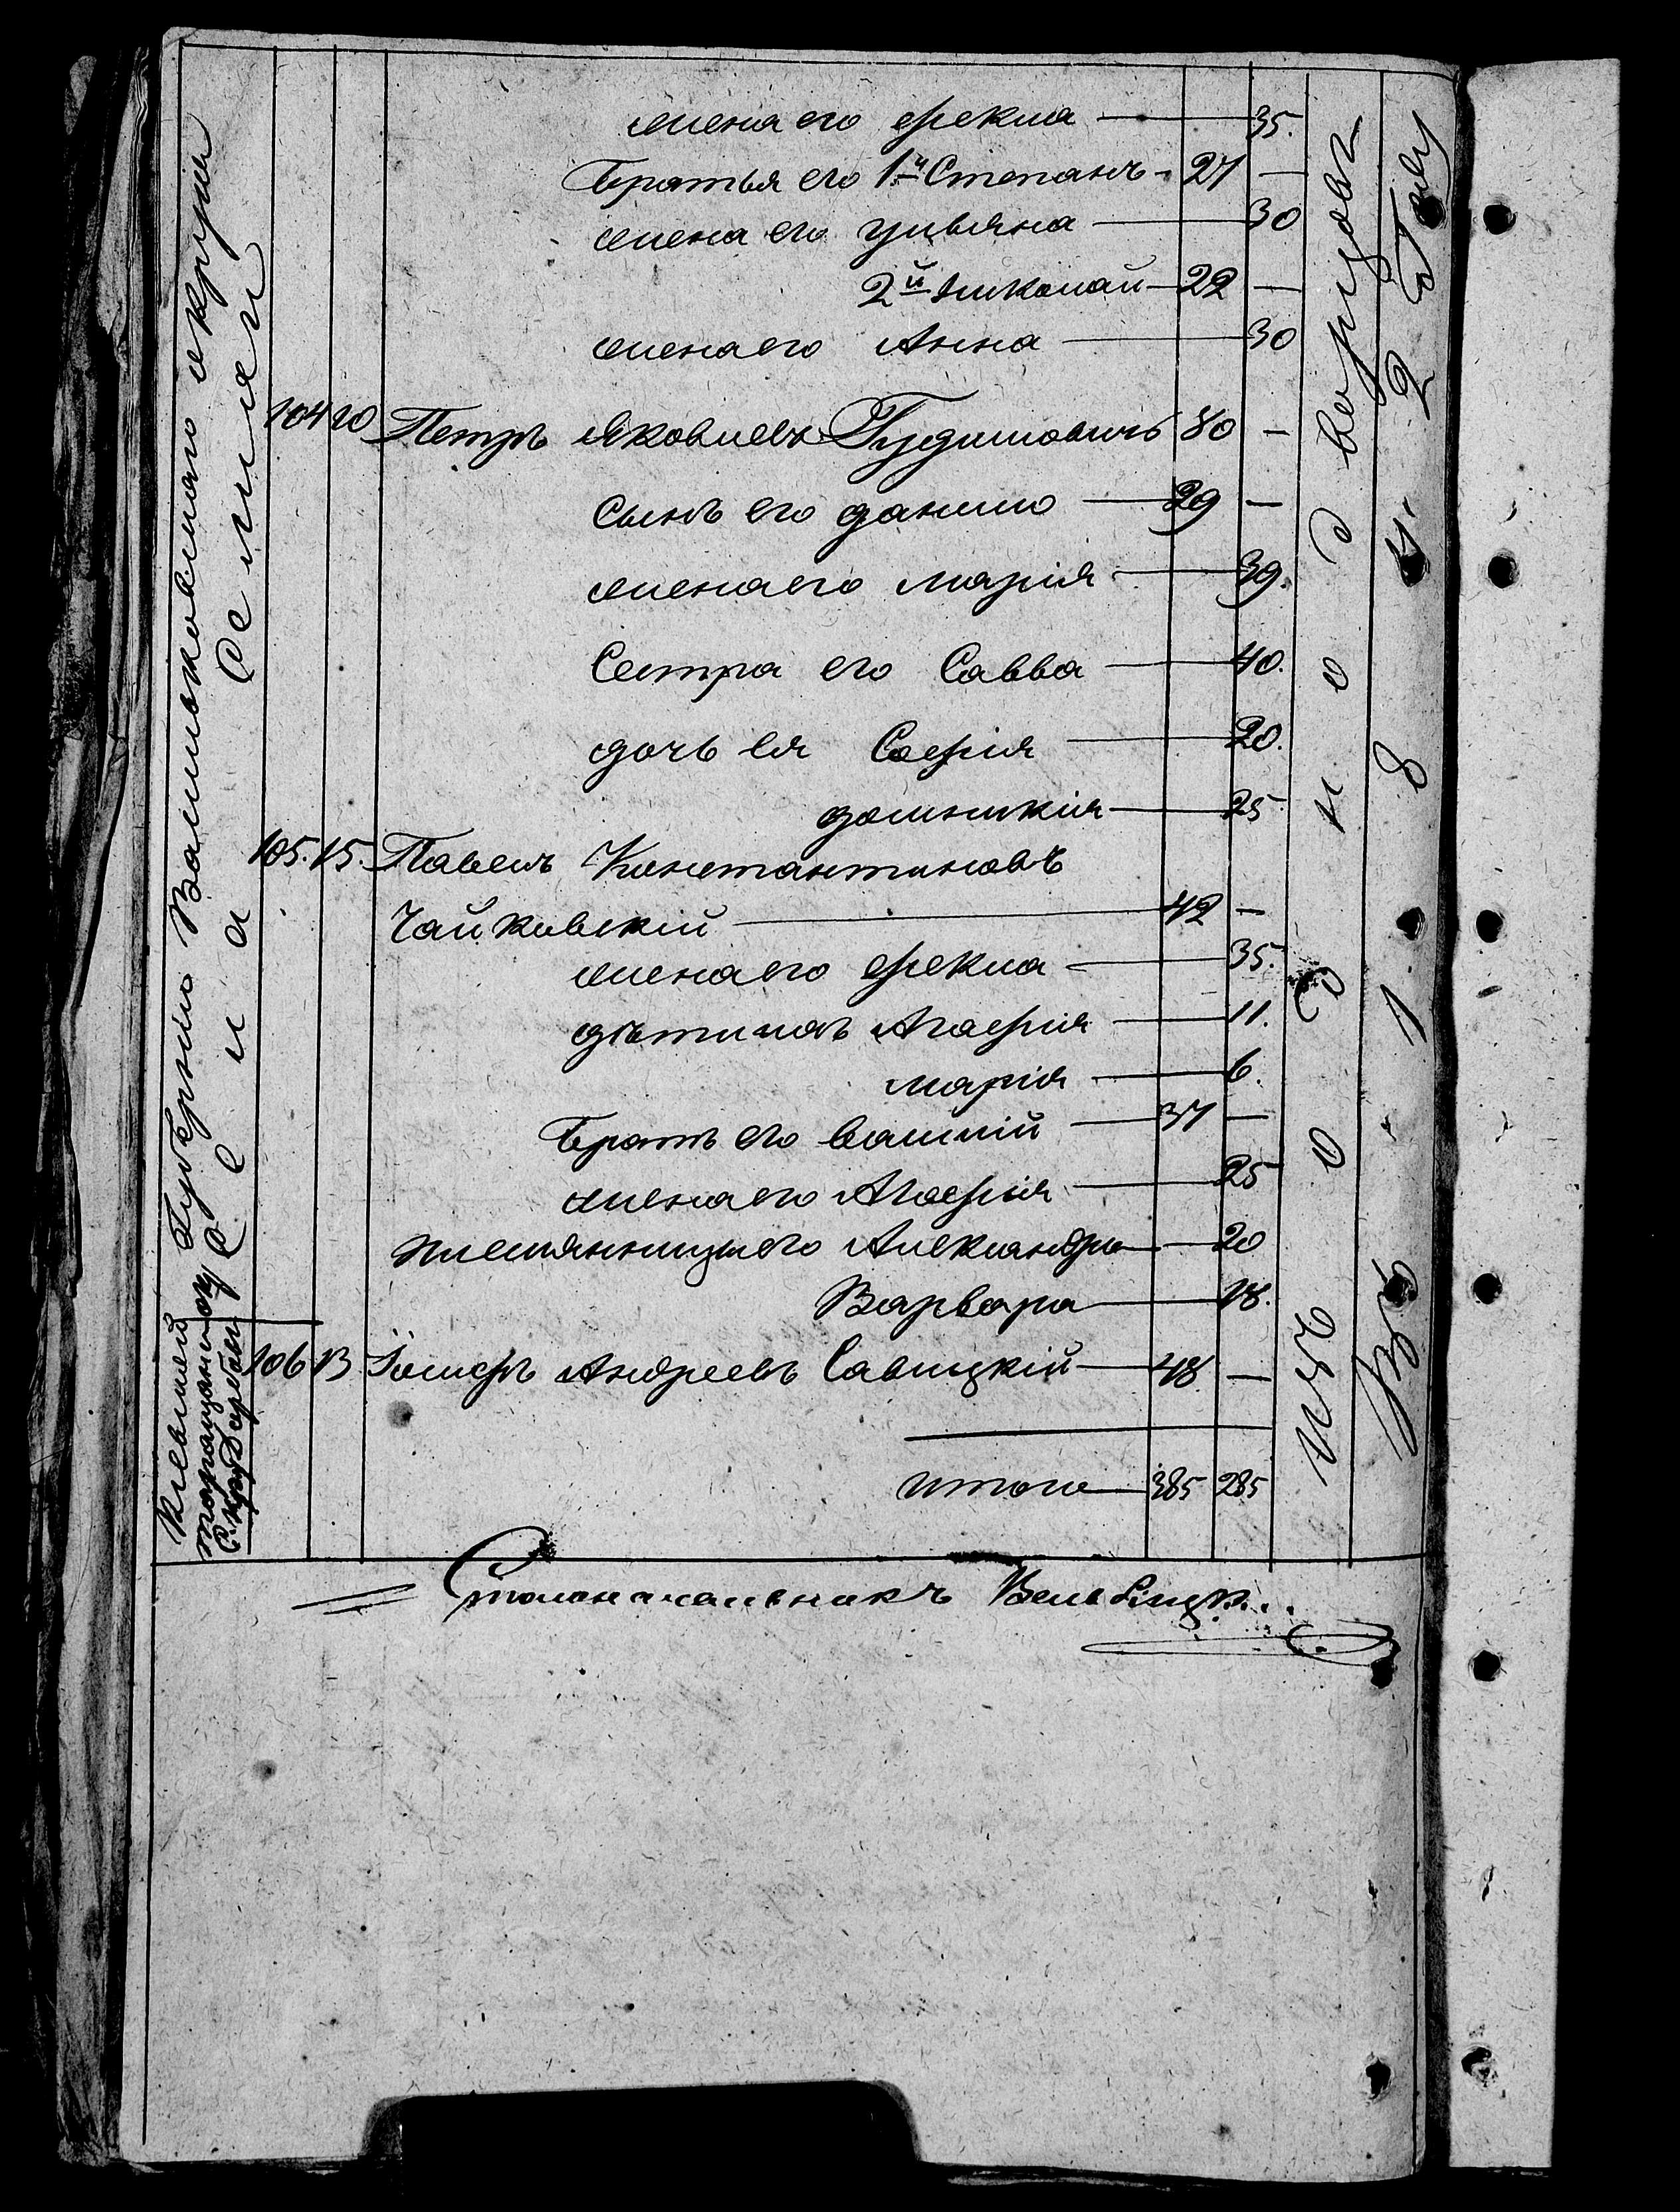 жена его фекла — 35.
братья его 1й Степанъ - 27 —
жена его ульяна — 30
2й николай — 22 —
жена его Анна — 30
104 10 Петръ Яковлевъ Гудимовичъ 80 —
сынъ его данило — 29 —
жена его марія — 39.
Сестра его Савва — 40.
дочь ея Софія — 20.
домникія — 25
105. 15. Павелъ Константиновъ
Чайковскій — 42 —
жена его фекла — 35.
дѣти ихъ Агафія — 11.
марія — 6.
братъ его василій — 37 —
жена его Агафія — 25
племянницы его Александра — 20
Варвара — 18.
106 13 Іосифъ Андреевъ Савицкій — 48 —
итого — 385 285
Столоначальникъ
Кіевской Губерніи Васильковскаго округи
таращанскому
Селеніи
изъ однодворцовъ
1834 2 Году